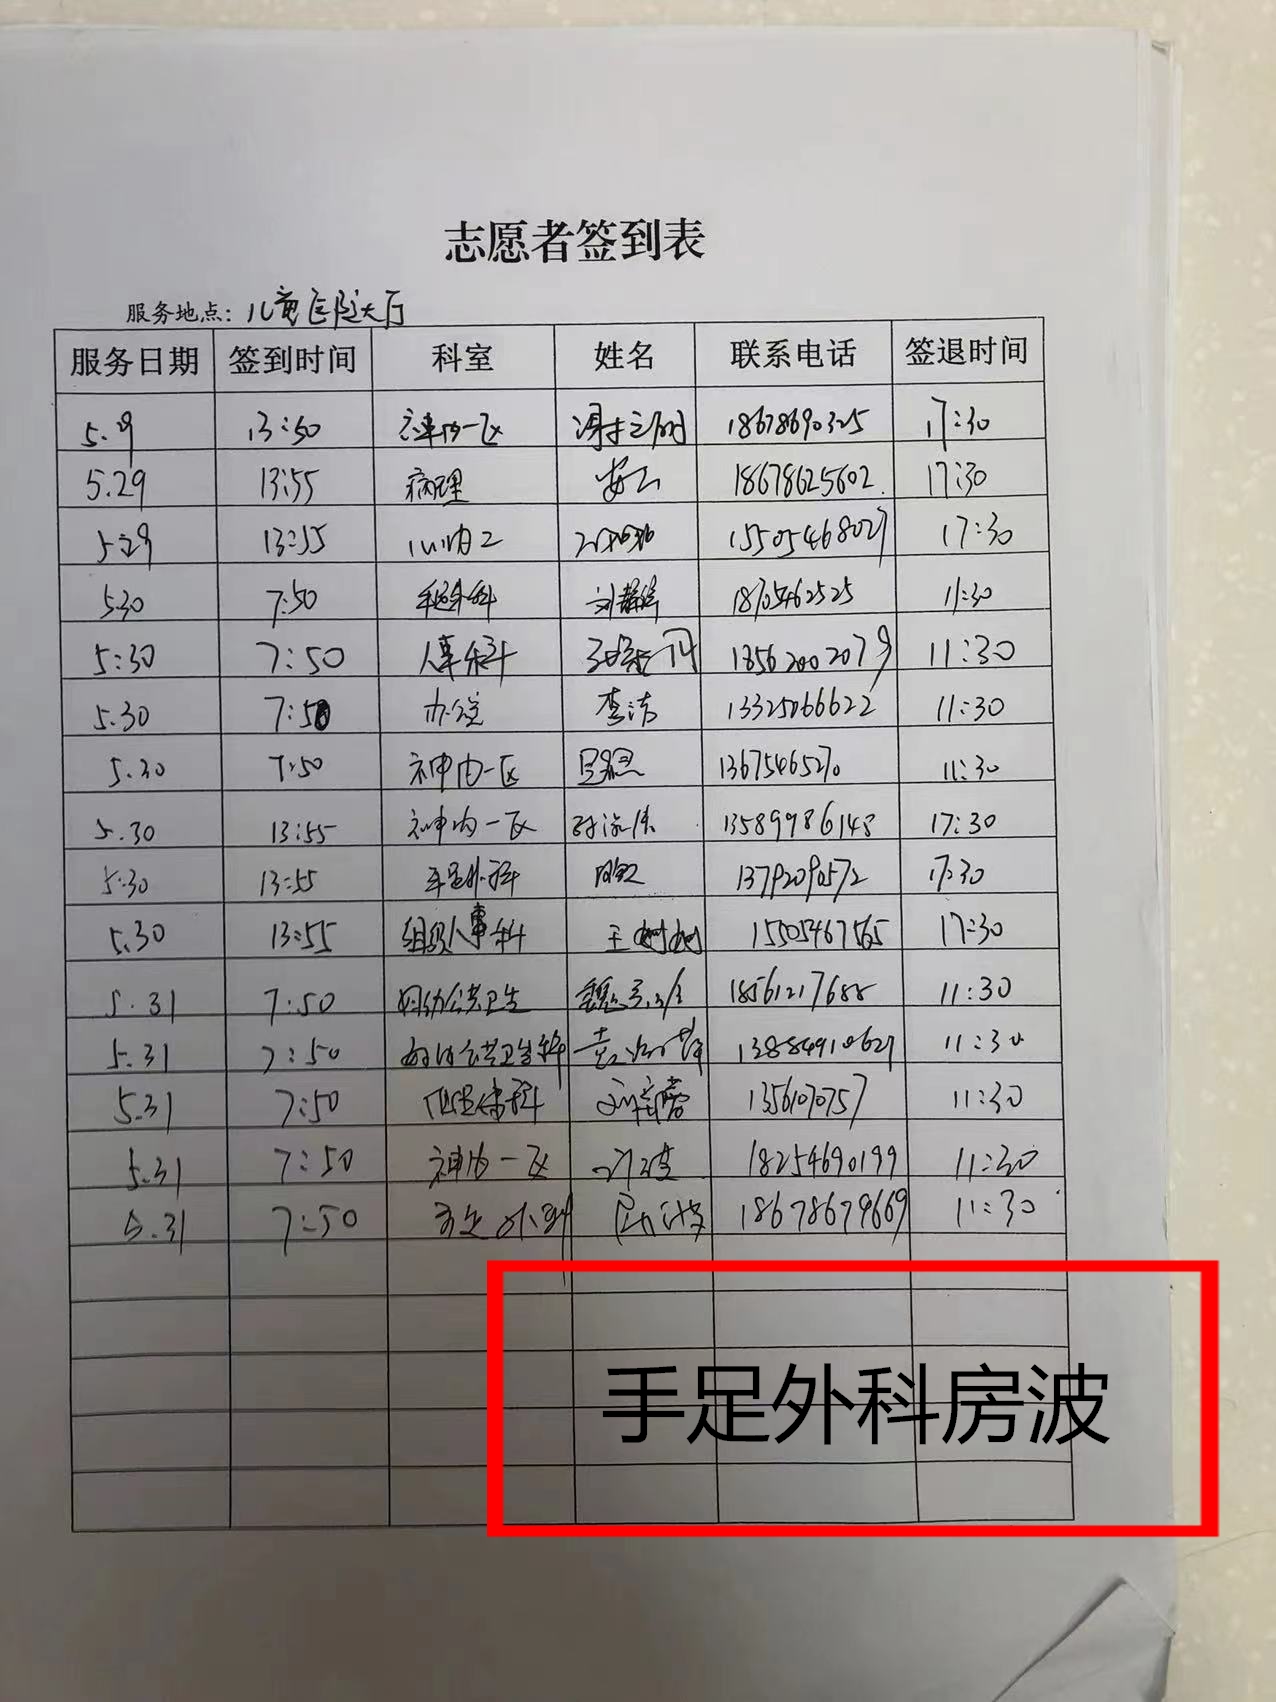 志愿者签到表
服务地点: 儿童医院大厅
服务日期 签到时间 科室 姓名 联系电话 签退时间
5.29 13:50 神内一区 18678690325 17:30
5.29 13:55 病理 18678625602. 17:30
5.29 13:55 15505468027 17:30
5.30 7:50 手足外科 18705462525 11:30
5:30 7:50 人事科 13562002079 11:30
5.30 7:50 办公室 李洁 13325066622 11:30
5.30 7:50 神内一区 13675465270 11:30
5.30 13:55 神内一区 13589986148 17:30
5.30 13:55 手足外科 13792090572 17:30
5.30 13:55 组织人事科 王树树 15505467565 17:30
5.31 7:50 妇幼公共卫生 18561217688 11:30
5.31 7:50 妇幼公共卫生科 13884910627 11:30
5.31 7:50 13561070757 11:30
5.31 7:50 神内一区 18254690199 11:30
5.31 7:50 手足外科 房波 18678679669 11:30
手足外科房波